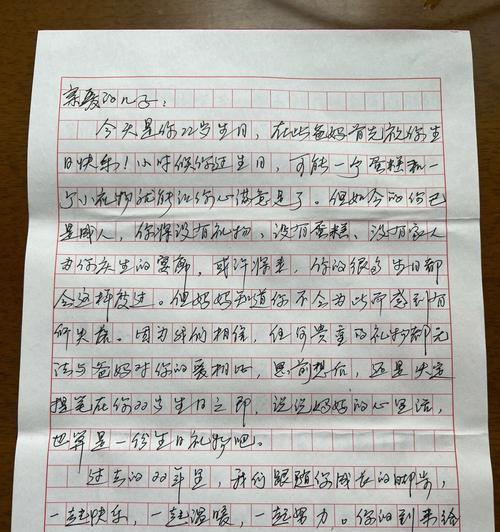 亲爱的儿子：
今天是你22岁生日，在此爸妈首先祝你生
日快乐！小时候你过生日，可能一个蛋糕和一
个小礼物就能让你心满意足了。但如今的你已
是成人，你将没有礼物、没有蛋糕、没有家人
为你庆生的宴席，或许将来，你的很多生日都
会这样度过。但妈妈知道你不会为此而感到有
所失落。因为咱们相信，任何贵重的礼物都无
法与爸妈对你的爱相比，思前想后，还是决定
提笔在你22岁生日之即，说说妈妈的心里话，
也算是一份生日礼物吧。
过去的22年里，我们跟随你成长的脚步，
一起快乐，一起温暖，一起努力。你的到来给